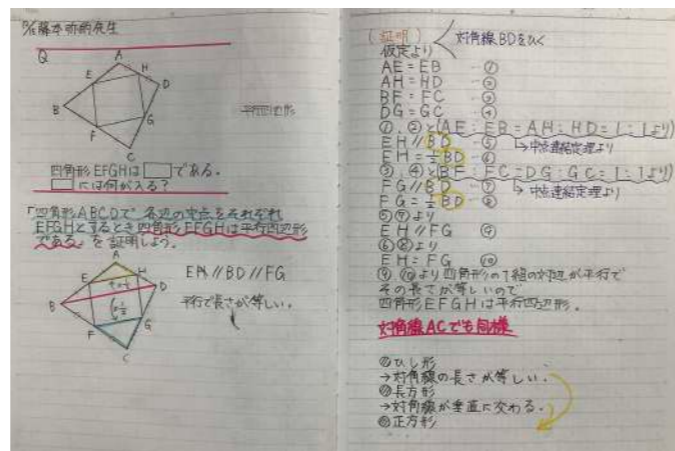 Q
A
H
E
D
B
G
F
C
平行四辺形
四角形EFGHは□である。
□には何が入る?
「四角形ABCDで各辺の中点をそれぞれ
EFGHとするとき四角形EFGHは平行四辺形
である」を証明しよう。
A
E
H
D
B
F
G
C
EH//BD//FG
平行で長さが等しい。
(証明)
対角線BDをひく
仮定より
AE=EB …①
AH=HD …②
BF=FC …③
DG=GC …④
①,②と(AE:EB=AH:HD=1:1より)
EH//BD …⑤
→中点連結定理より
EH=1/2BD …⑥
③,④と(BF:FC=DG:GC=1:1より)
FG//BD …⑦
→中点連結定理より
FG=1/2BD …⑧
⑤⑦より
EH//FG ⑨
⑥⑧より
EH=FG ⑩
⑨,⑩より四角形の1組の対辺が平行で
その長さが等しいので
四角形EFGHは平行四辺形。
対角線ACでも同様
ひし形
→対角線の長さが等しい。
長方形
→対角線が垂直に交わる。
正方形